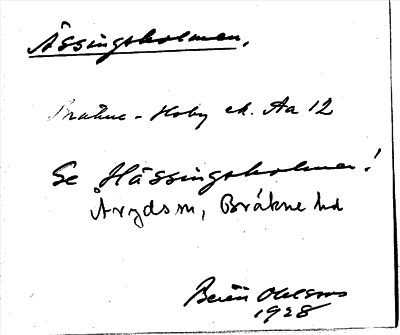 Ässingsholmen.
Bräkne-Hoby ek. Aa 12
Se Hässingsholmen!
Åryds sn, Bräkne hd
Ohlsson
1928